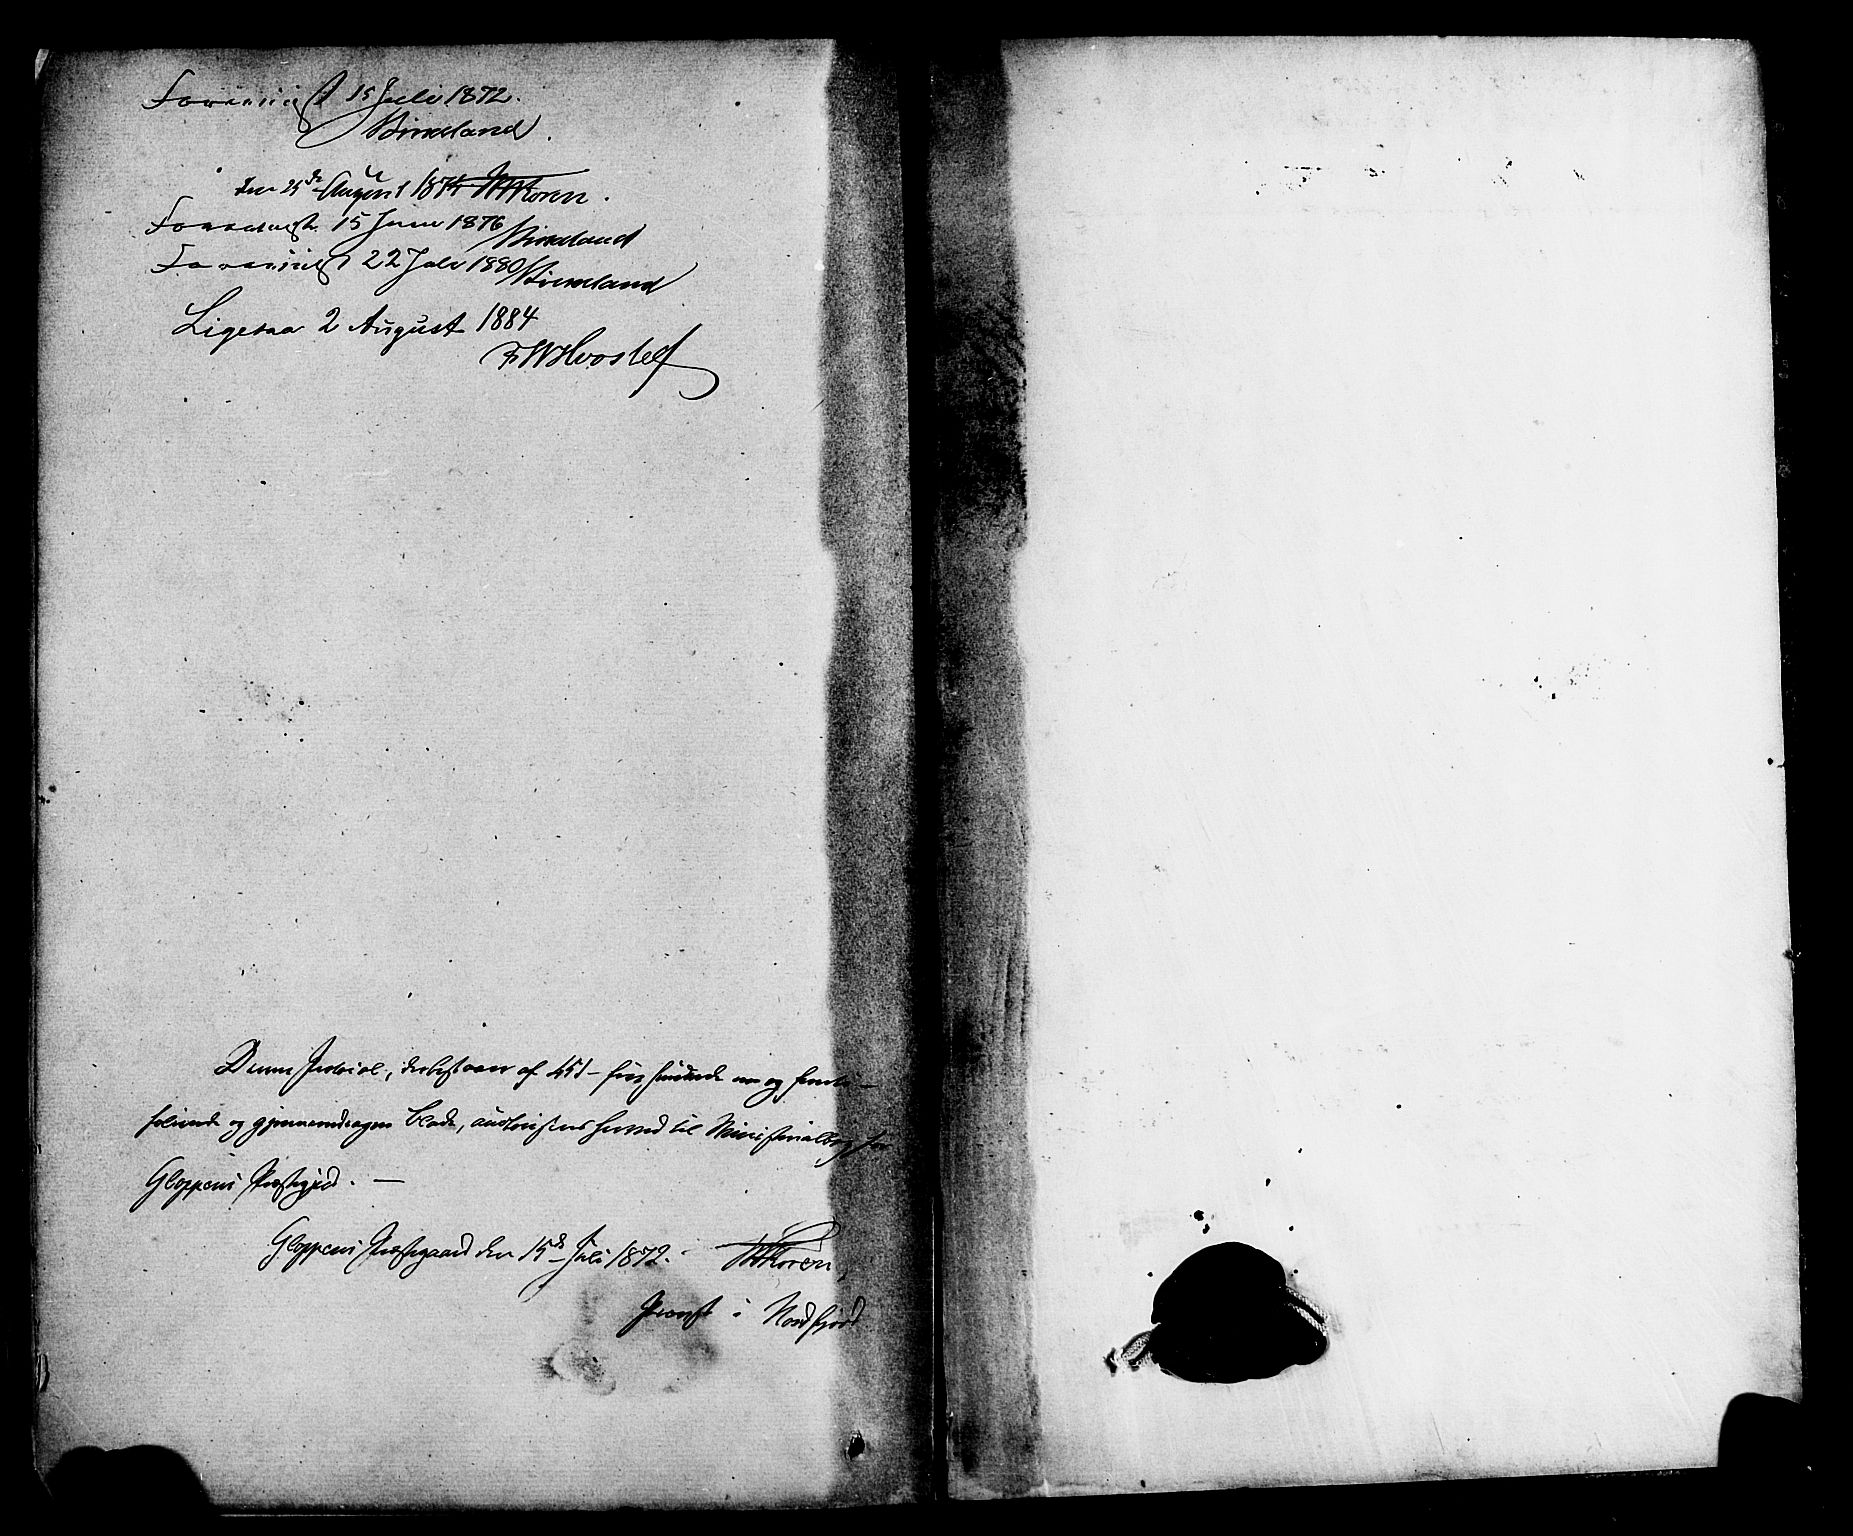 Foreviist 15 Juli 1872.
Birkeland.
den 25de August 1874 WKoren.
Foreviist 15 Juni 1876 Birkeland
Foreviist 22 Juli 1880 Birkeland
Ligesaa 2 August 1884
FWHvoslef
Denne Protocol, der bestaaer af 451 – fire hundrede en og femti –
folierede og gjennemdragne Blade, authoriseres herved til Ministerialbog for
Gloppens Præstegjeld. —
Gloppens Præstegaard den 15de Juli 1872. WKoren,
Provst i Nordfjord